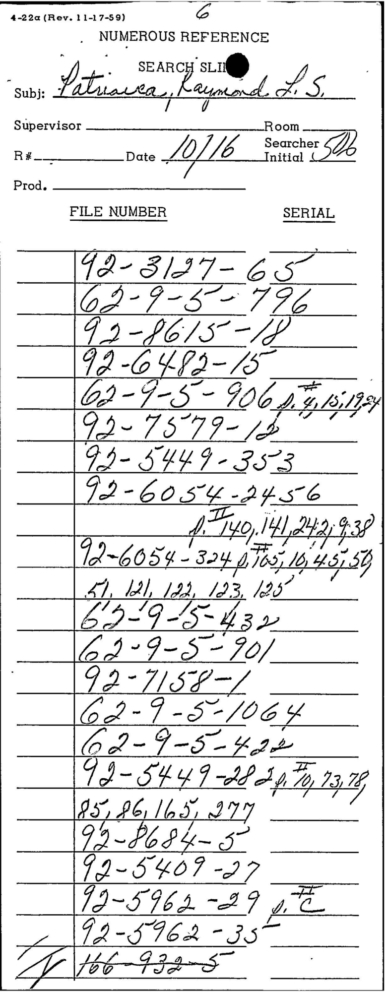 4-22a (Rev. 11-17-59)
6
NUMEROUS REFERENCE
SEARCH SLIP
Subj: Patriarca, Raymond L. S.
Supervisor Room
R# Date 10/16 Searcher Initial 506
Prod.
FILE NUMBER SERIAL
92-3127-65
62-9-5-796
92-8615-18
92-6482-15
62-9-5-906 p. # 4, 15, 19, 24
92-7579-12
92-5449-353
92-6054-2456
p. II 140, 141, 242, 9, 38
92-6054-324 p. # 105, 10, 45, 50,
51, 121, 122, 123, 125
62-9-5-432
62-9-5-901
92-7158-1
62-9-5-1064
62-9-5-422
92-5449-282 p. II 10, 73, 78,
85, 86, 165, 277
92-8684-5
92-5409-27
92-5962-29 p. II C
92-5962-35
166-932-5